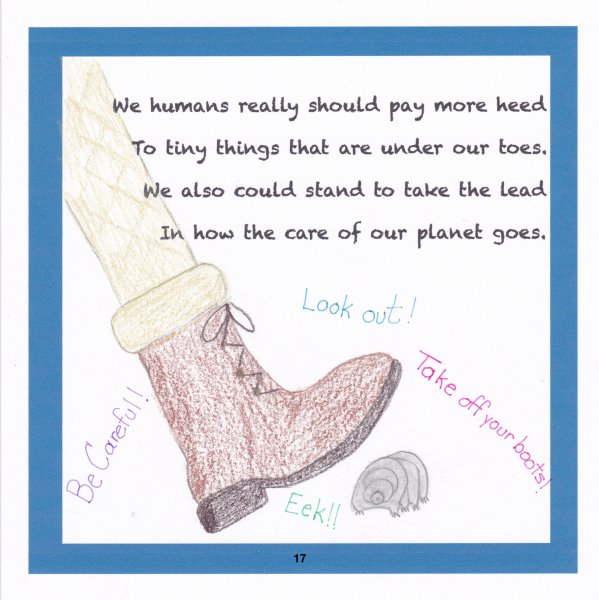 We humans really should pay more heed
To tiny things that are under our toes.
We also could stand to take the lead
In how the care of our planet goes.
Look out!
Take off your boots!
Be Careful!
Eek!!
17